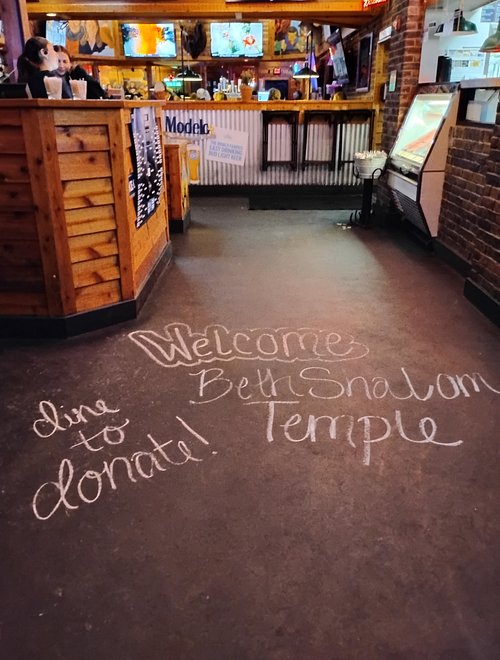 Modelo
Welcome
Beth Shalom
Temple
dine
to
donate!